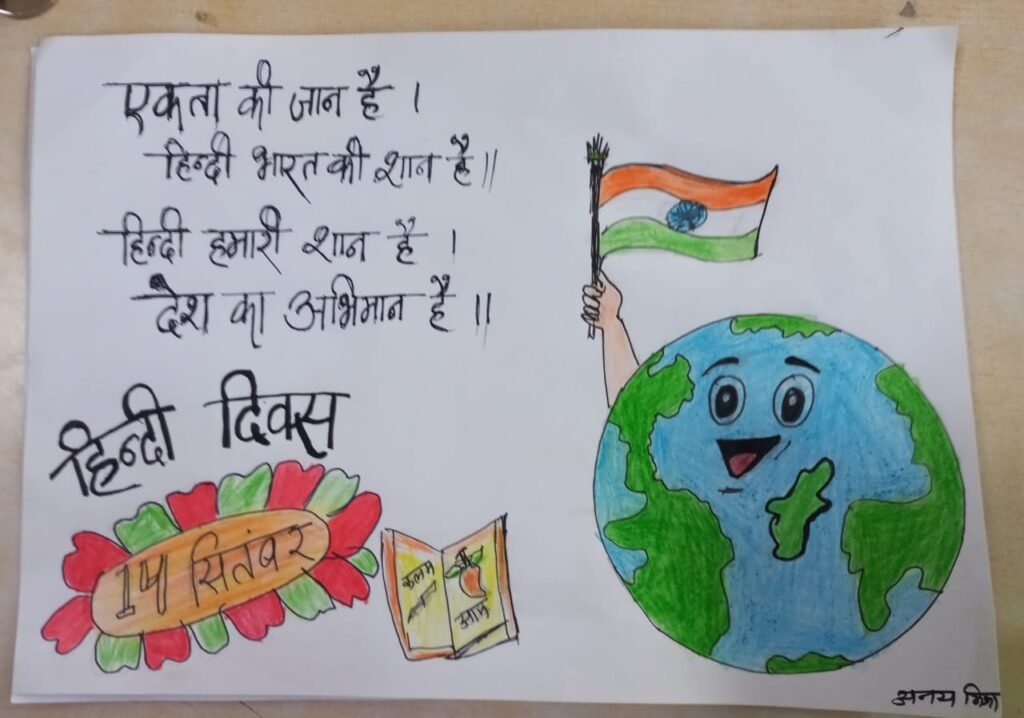 एकता की जान है ।
हिन्दी भारत की शान है ॥
हिन्दी हमारी शान है ।
देश का अभिमान है ॥
हिन्दी दिवस
14 सितंबर
कलम
आम
अनय